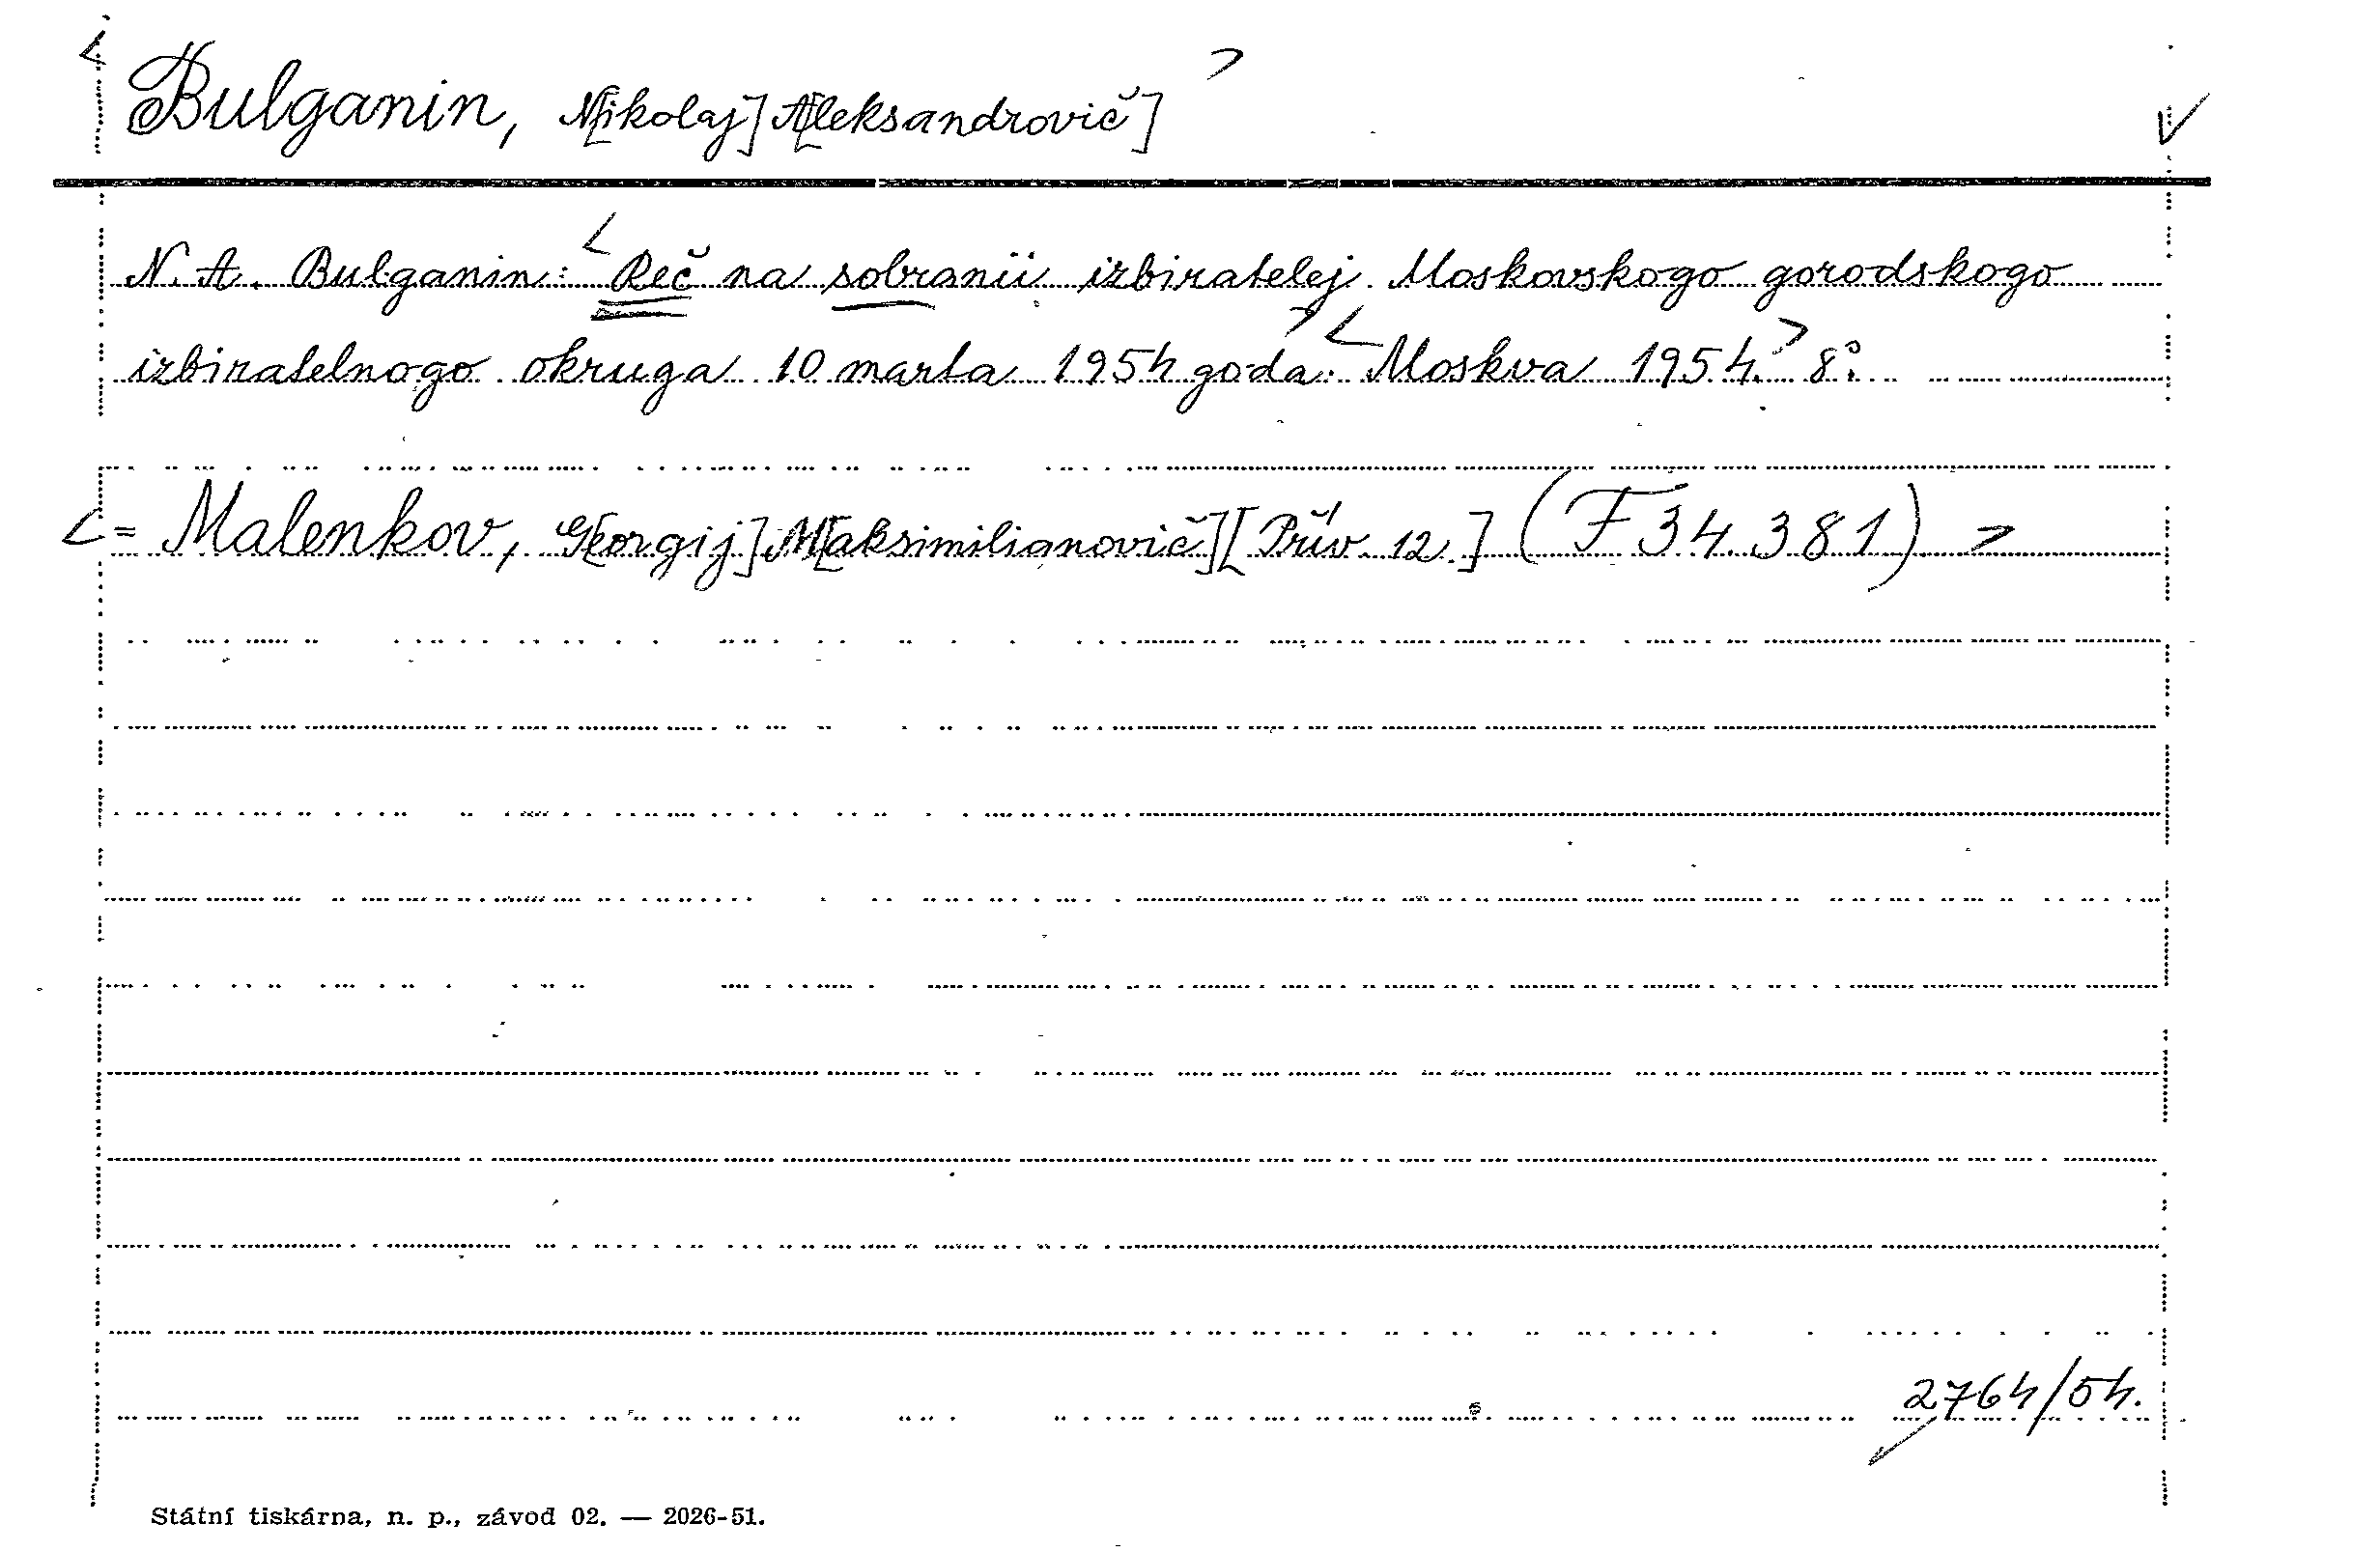 < Bulganin, N[ikolaj] A[leksandrovič] >
N. A. Bulganin: < Reč na sobranii izbiratelej Moskovskogo gorodskogo
izbiratelnogo okruga 10 marta 1954 goda. > < Moskva 1954. > 8°.
< = Malenkov, G[eorgij] M[aksimilianovič] [Přív. 12.] (F 34.381) >
2764/54.
Státní tiskárna, n. p., závod 02. — 2026-51.